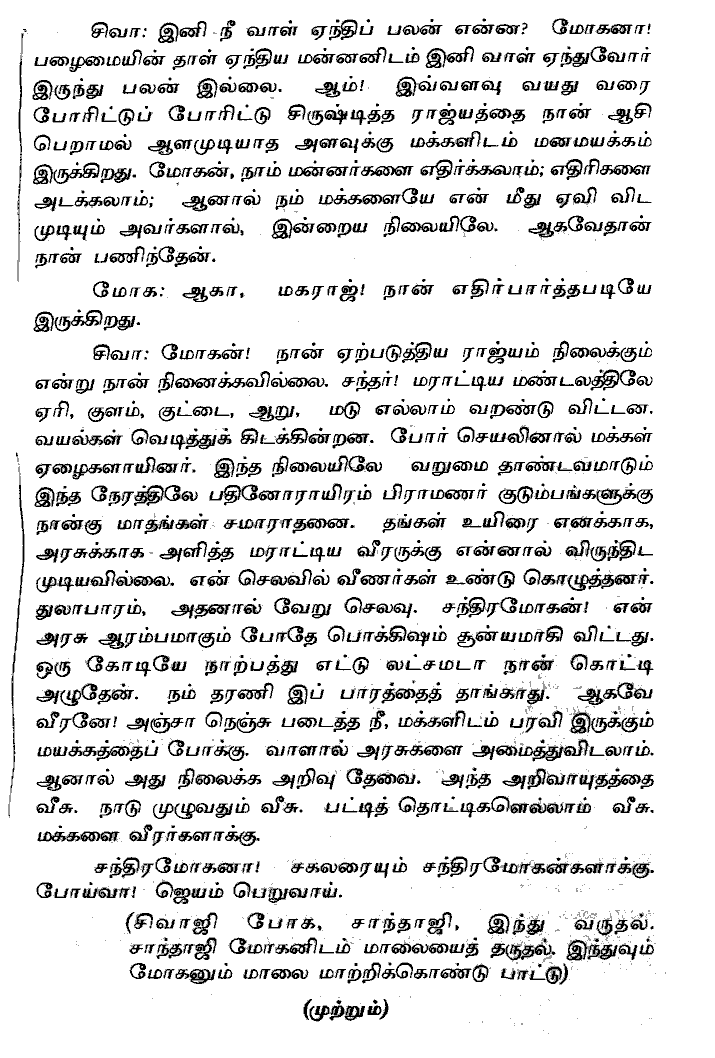 சிவா: இனி நீ வாள் ஏந்திப் பலன் என்ன? மோகனா!
பழைமையின் தாள் ஏந்திய மன்னனிடம் இனி வாள் ஏந்துவோர்
இருந்து பலன் இல்லை. ஆம்! இவ்வளவு வயது வரை
போரிட்டுப் போரிட்டு சிருஷ்டித்த ராஜ்யத்தை நான் ஆசி
பெறாமல் ஆளமுடியாத அளவுக்கு மக்களிடம் மனமயக்கம்
இருக்கிறது. மோகன், நாம் மன்னர்களை எதிர்க்கலாம்; எதிரிகளை
அடக்கலாம்; ஆனால் நம் மக்களையே என் மீது ஏவி விட
முடியும் அவர்களால், இன்றைய நிலையிலே. ஆகவேதான்
நான் பணிந்தேன்.
மோக: ஆகா, மகராஜ்! நான் எதிர்பார்த்தபடியே
இருக்கிறது.
சிவா: மோகன்! நான் ஏற்படுத்திய ராஜ்யம் நிலைக்கும்
என்று நான் நினைக்கவில்லை. சந்தர்! மராட்டிய மண்டலத்திலே
ஏரி, குளம், குட்டை, ஆறு, மடு எல்லாம் வறண்டு விட்டன.
வயல்கள் வெடித்துக் கிடக்கின்றன. போர் செயலினால் மக்கள்
ஏழைகளாயினர். இந்த நிலையிலே வறுமை தாண்டவமாடும்
இந்த நேரத்திலே பதினோராயிரம் பிராமணர் குடும்பங்களுக்கு
நான்கு மாதங்கள் சமாராதனை. தங்கள் உயிரை எனக்காக,
அரசுக்காக அளித்த மராட்டிய வீரருக்கு என்னால் விருந்திட
முடியவில்லை. என் செலவில் வீணர்கள் உண்டு கொழுத்தனர்.
துலாபாரம், அதனால் வேறு செலவு. சந்திரமோகன்! என்
அரசு ஆரம்பமாகும் போதே பொக்கிஷம் சூன்யமாகி விட்டது.
ஒரு கோடியே நாற்பத்து எட்டு லட்சமடா நான் கொட்டி
அழுதேன். நம் தரணி இப் பாரத்தைத் தாங்காது. ஆகவே
வீரனே! அஞ்சா நெஞ்சு படைத்த நீ, மக்களிடம் பரவி இருக்கும்
மயக்கத்தைப் போக்கு. வாளால் அரசுகளை அமைத்துவிடலாம்.
ஆனால் அது நிலைக்க அறிவு தேவை. அந்த அறிவாயுதத்தை
வீசு. நாடு முழுவதும் வீசு. பட்டித் தொட்டிகளெல்லாம் வீசு.
மக்களை வீரர்களாக்கு.
சந்திரமோகனா! சகலரையும் சந்திரமோகன்களாக்கு.
போய்வா! ஜெயம் பெறுவாய்.
(சிவாஜி போக, சாந்தாஜி, இந்து வருதல்.
சாந்தாஜி மோகனிடம் மாலையைத் தருதல். இந்துவும்
மோகனும் மாலை மாற்றிக்கொண்டு பாட்டு)
(முற்றும்)